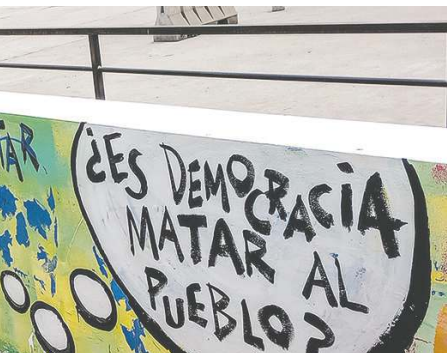 ¿ES DEMOCRACIA
MATAR AL
PUEBLO?